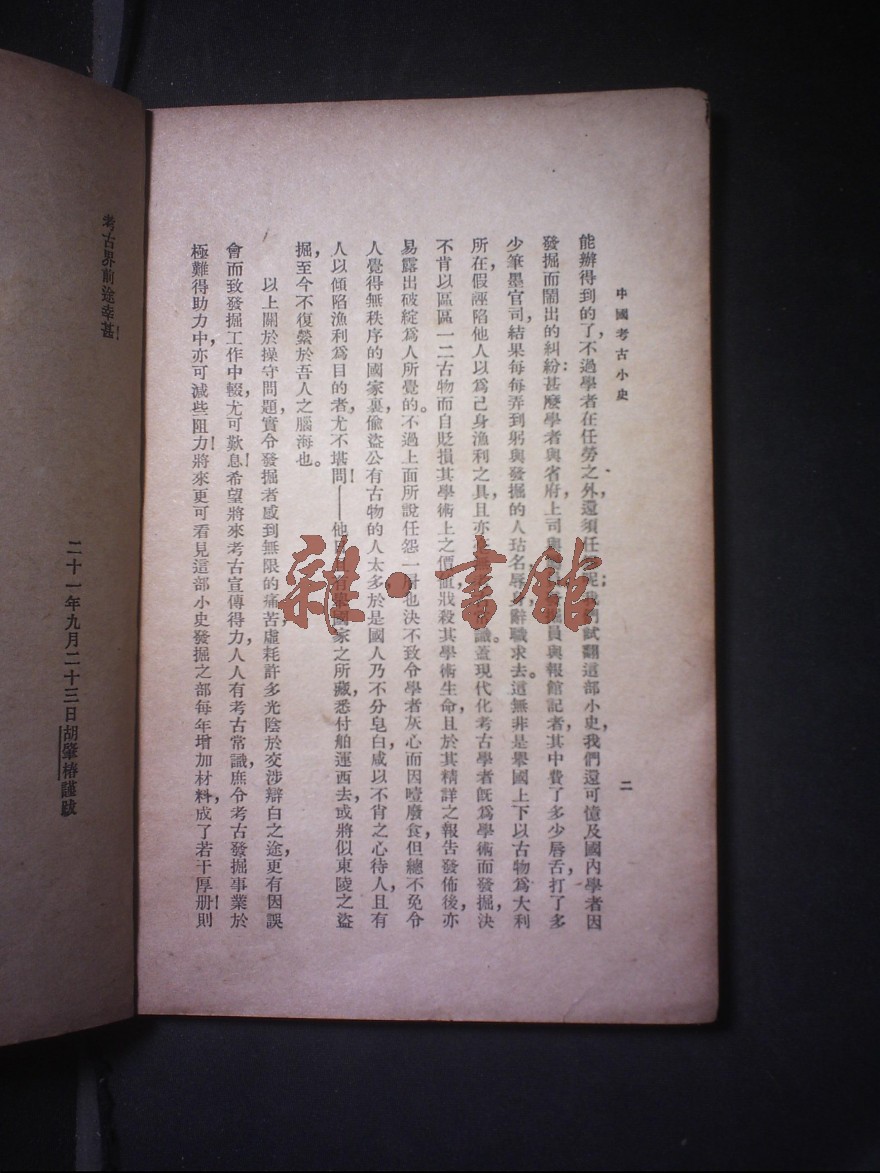 中國考古小史
二
能辦得到的了，不過學者在任勞之外，還須任怨呢；我們試翻這部小史，我們還可憶及國內學者因
發掘而鬧出的糾紛：甚麼學者與省府上司與掘員與報館記者，其中費了多少唇舌，打了多
少筆墨官司，結果每每弄到躬與發掘的人玷名辱身，辭職求去。這無非是舉國上下以古物爲大利
所在，假誣陷他人以爲己身漁利之具，且亦識。蓋現代化考古學者旣爲學術而發掘，決
不肯以區區一二古物而自貶損其學術上之價值，戕殺其學術生命，且於其精詳之報告發佈後，亦
易露出破綻爲人所覺的。不過上面所說任怨一層也決不致令學者灰心而因噎廢食，但總不免令
人覺得無秩序的國家裏，偸盜公有古物的人太多，於是國人乃不分皂白，咸以不肖之心待人，且有
人以傾陷漁利爲目的者，尤不堪問！——他國家之所藏，悉付舶運西去，或將似東陵之盜
掘，至今不復縈於吾人之腦海也。
以上關於操守問題，實令發掘者感到無限的痛苦，虛耗許多光陰於交涉辯白之途，更有因誤
會而致發掘工作中輟，尤可歎息！希望將來考古宣傳得力，人人有考古常識，庶令考古發掘事業於
極難得助力中，亦可減些阻力！將來更可看見這部小史發掘之部每年增加材料，成了若干厚册！則
考古界前途幸甚！
二十一年九月二十三日胡肇椿謹跋
雜·書館